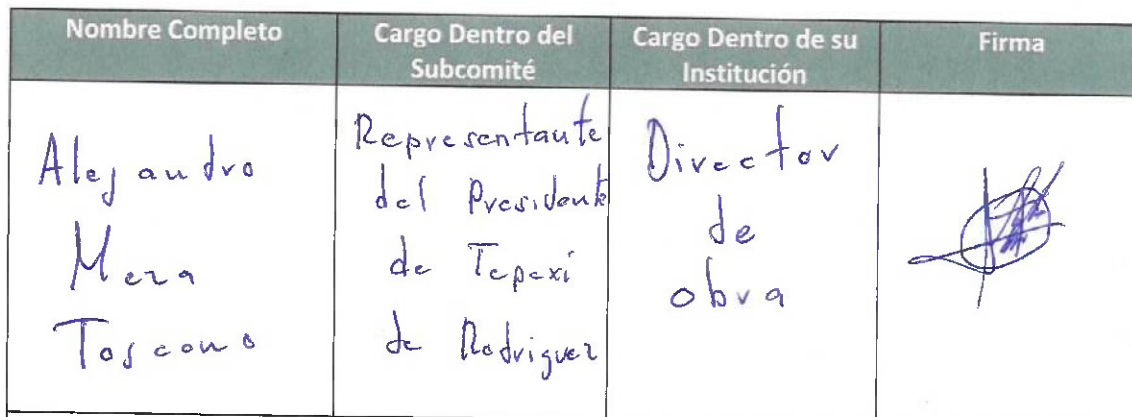 Nombre Completo
Cargo Dentro del
Subcomité
Cargo Dentro de su
Institución
Firma
Alejandro
Meza
Toscano
Representante
del Presidente
de Tepexi
de Rodriguez
Director
de
obra